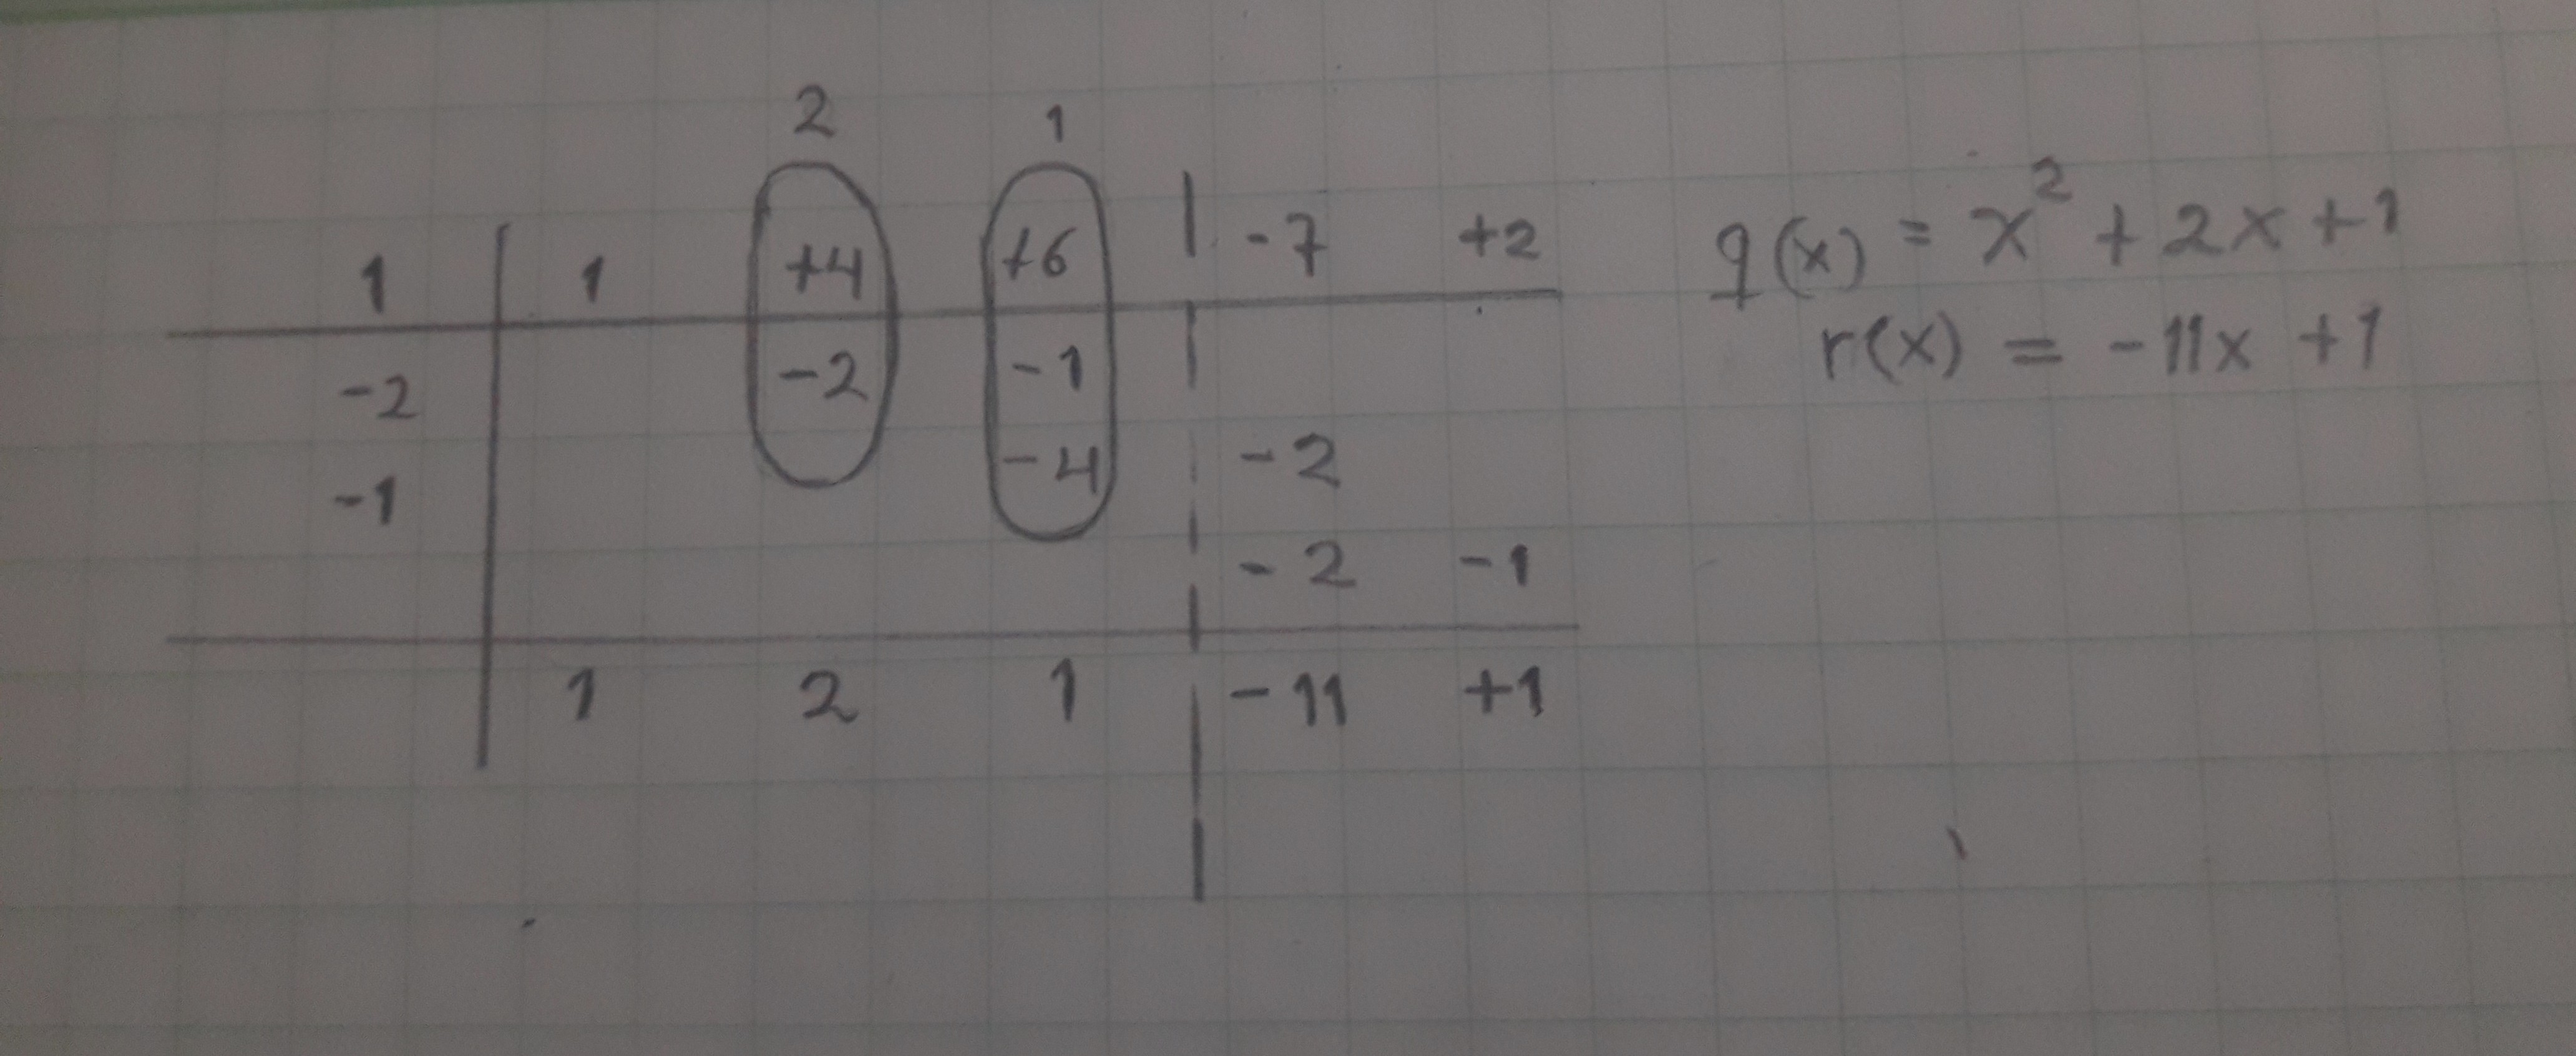 2 1
1 | 1 +4 +6 | -7 +2
-2 | -2 -1
-1 | -4 -2
-2 -1
1 2 1 -11 +1
q(x) = x² + 2x + 1
r(x) = -11x + 1